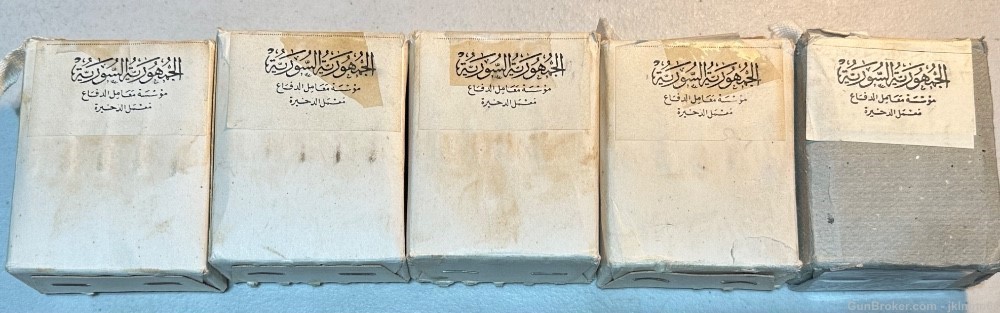 الجمهورية السورية
مؤسسة معامل الدفاع
معمل الذخيرة
الجمهورية السورية
مؤسسة معامل الدفاع
معمل الذخيرة
الجمهورية السورية
مؤسسة معامل الدفاع
معمل الذخيرة
الجمهورية السورية
مؤسسة معامل الدفاع
معمل الذخيرة
الجمهورية السورية
مؤسسة معامل الدفاع
معمل الذخيرة